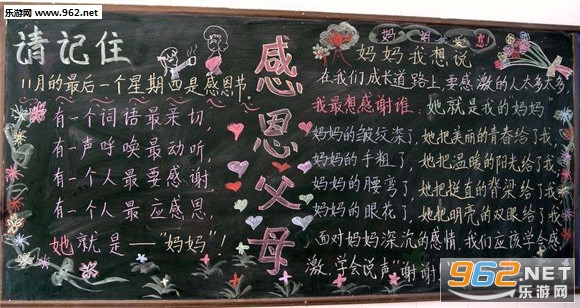 www.962.net
乐游网
请记住
11月的最后一个星期四是感恩节,
有一个词语最亲切,
有一声呼唤最动听,
有一个人最要感谢,
有一个人最应感恩,
她就是——"妈妈"!
感恩父母
妈妈我想说
在我们成长道路上,要感激的人太多太多
我最想感谢谁,她就是我的妈妈"
妈妈的皱纹深了,她把美丽的青春给了我,
妈妈的手粗了,她把温暖的阳光给了我,
妈妈的腰弯了,她把挺直的脊梁给了我,
妈妈的眼花了,她把明亮的双眼给了我
面对妈妈深沉的感情,我们应该学会感
激,学会说声"谢谢!
962.NET
乐游网